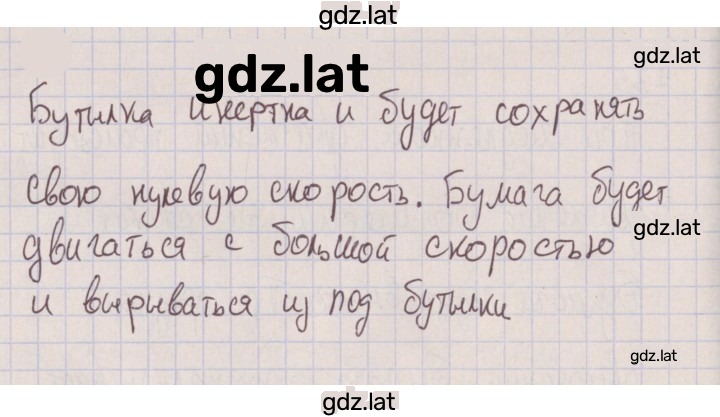 gdz.lat
gdz.lat
gdz.lat
Бутылка инертна и будет сохранять
свою нулевую скорость. Бумага будет
gdz.lat
двигаться с большой скоростью
и вырываться из под бутылки
gdz.lat
gdz.lat